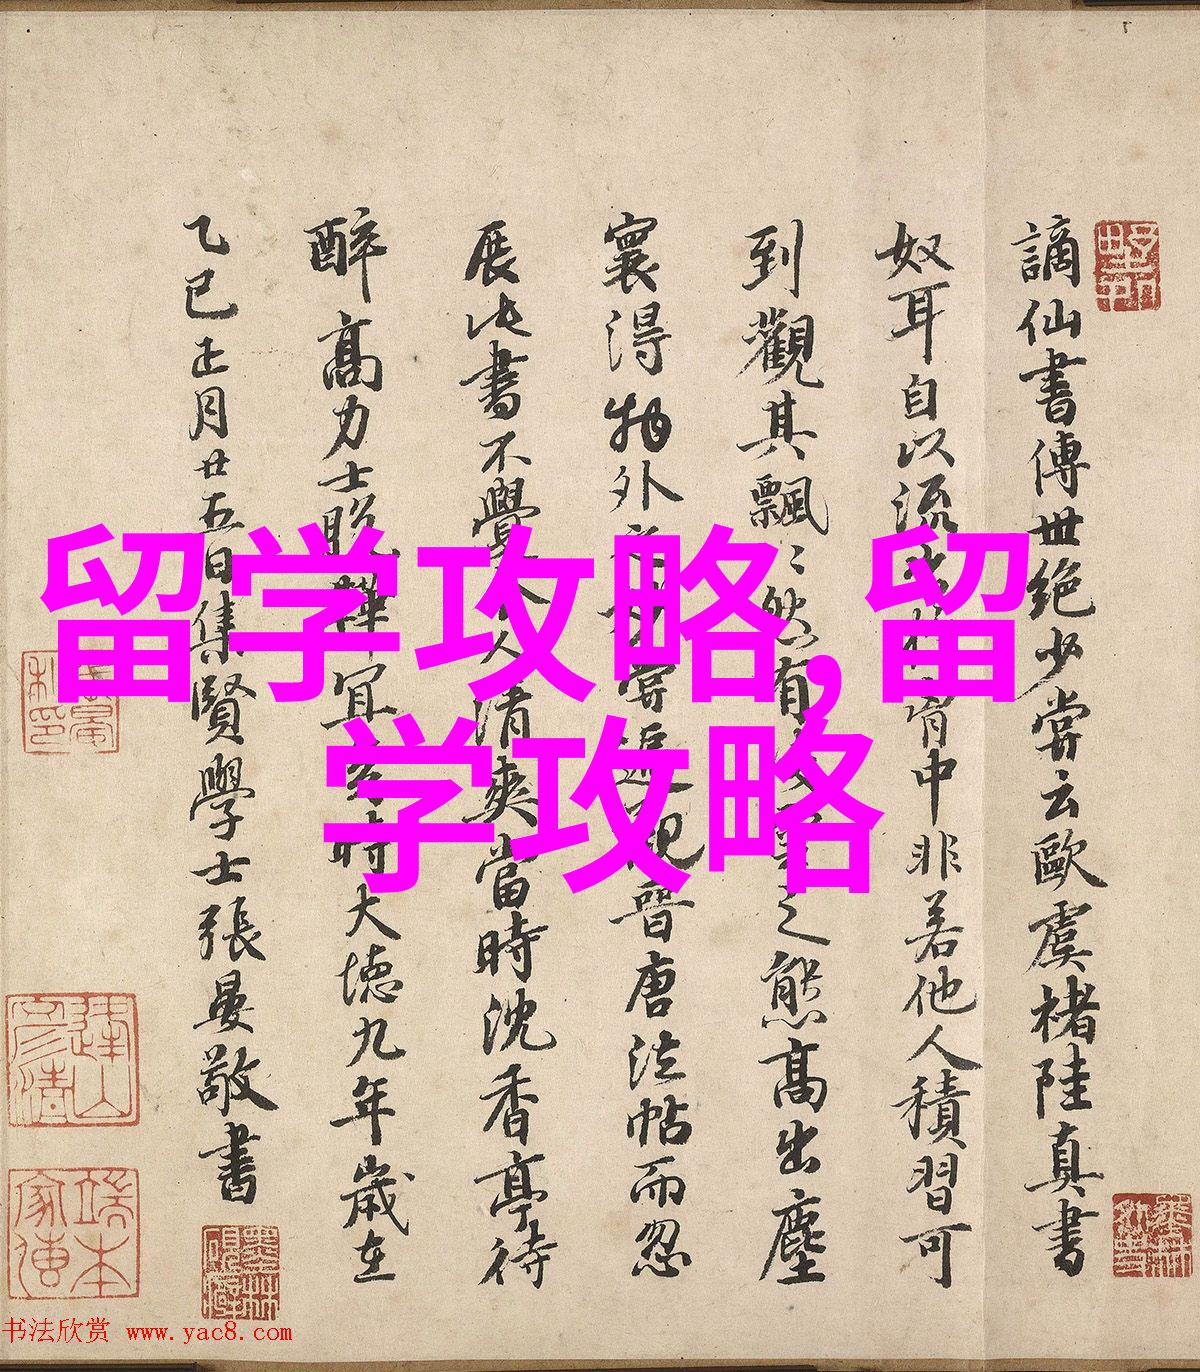 謫仙書傳世絕少嘗云歐虞褚陸真書
奴耳自以流出於胸中非若他人積習可
到觀其飄〻然有之態高出塵
寰得物外之妙嘗遍觀晉唐法帖而忽
展此書不覺令人清爽當時沈香亭待
醉高力士脫鞾宜矣時大德九年歲在
乙巳正月廿五日集賢學士張晏敬書
留学攻略,留
学攻略
书法欣赏 www.yac8.com